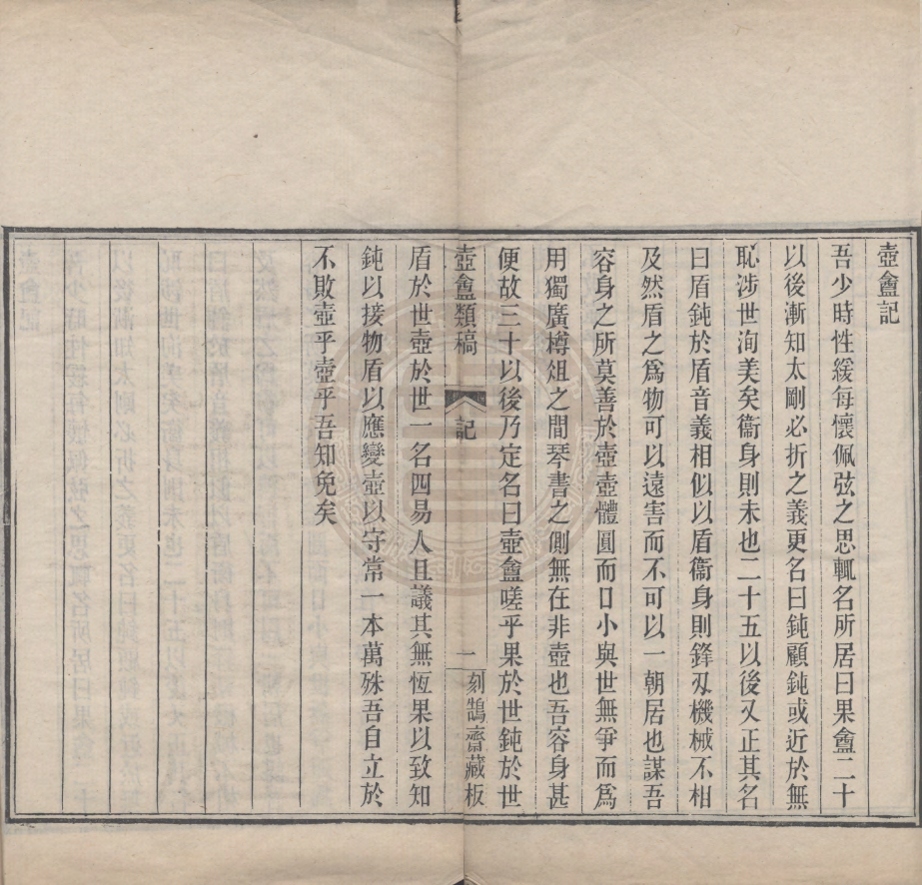 壺盦記
吾少時性緩每懷佩弦之思輒名所居曰果盦二十
以後漸知太剛必折之義更名曰鈍顧鈍或近於無
恥涉世洵美矣衞身則未也二十五以後又正其名
曰盾鈍於盾音義相似以盾衞身則鋒刃機械不相
及然盾之爲物可以遠害而不可以一朝居也謀吾
容身之所莫善於壺壺體圓而口小與世無爭而爲
用獨廣樽俎之間琴書之側無在非壺也吾容身甚
便故三十以後乃定名曰壺盦嗟乎果於世鈍於世
壺盦類稿 記 一 刻鵠齋藏板
盾於世壺於世一名四易人且議其無恆果以致知
鈍以接物盾以應變壺以守常一本萬殊吾自立於
不敗壺乎壺乎吾知免矣